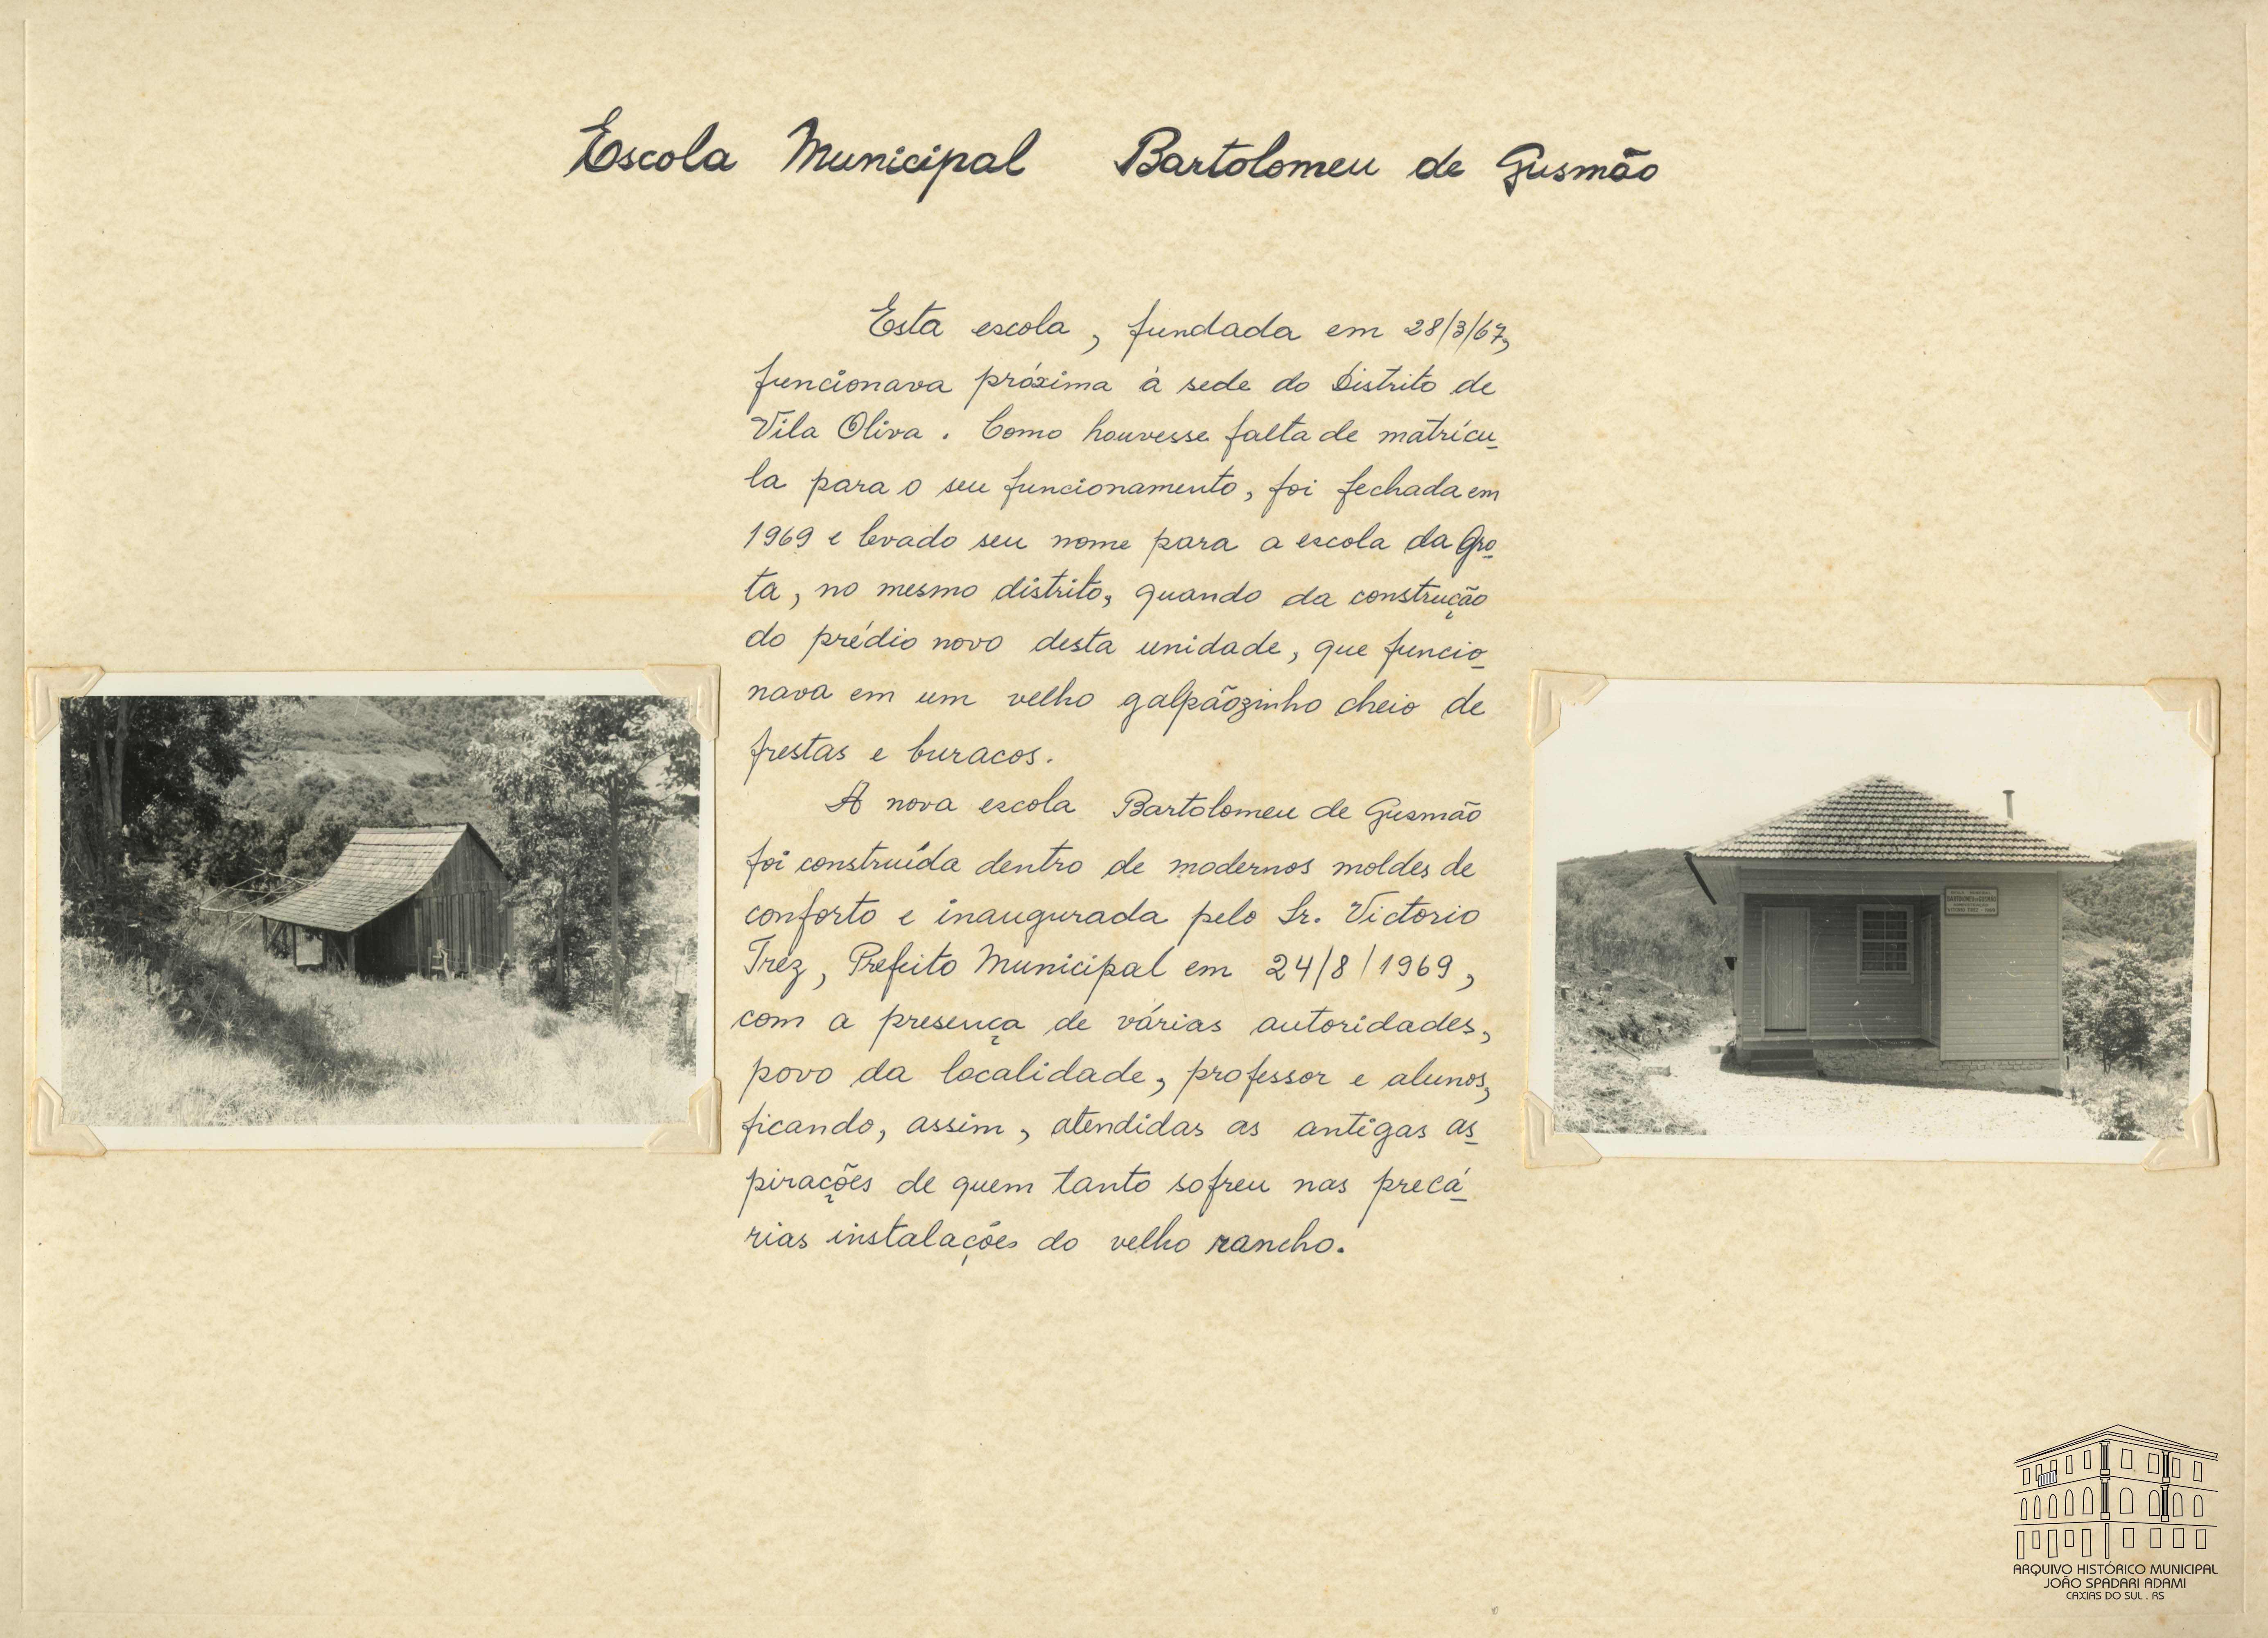 Escola Municipal Bartolomeu de Gusmão
Esta escola, fundada em 28/3/67,
funcionava próxima à sede do Distrito de
Vila Oliva. Como houvesse falta de matrícu-
la para o seu funcionamento, foi fechada em
1969 e levado seu nome para a escola da Gro-
ta, no mesmo distrito, quando da construção
do prédio novo desta unidade, que funcio-
nava em um velho galpãozinho cheio de
frestas e buracos.
A nova escola Bartolomeu de Gusmão
foi construída dentro de modernos moldes de
conforto e inaugurada pelo Sr. Victorio
Trez, Prefeito Municipal em 24/8/1969,
com a presença de várias autoridades,
povo da localidade, professor e alunos,
ficando, assim, atendidas as antigas as-
pirações de quem tanto sofreu nas precá-
rias instalações do velho rancho.
BARTOLOMEU de GUSMÃO
ARQUIVO HISTÓRICO MUNICIPAL
JOÃO SPADARI ADAMI
CAXIAS DO SUL . RS